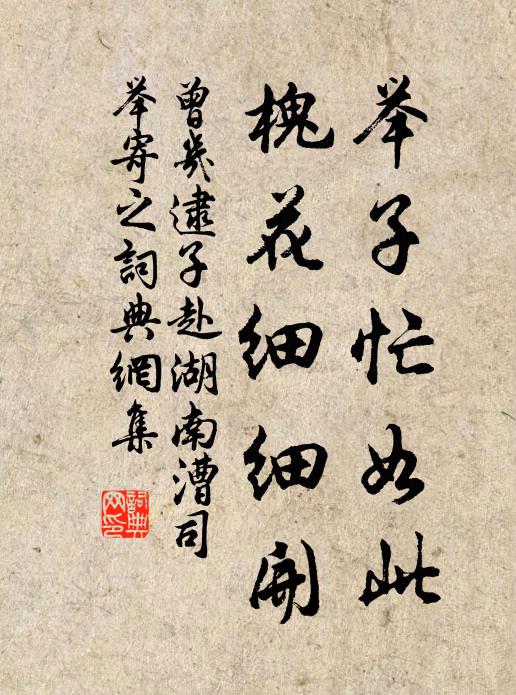 举子忙如此
槐花细细开
曾幾逮子赴湖南漕司
举寄之詞典網集
詞典网印